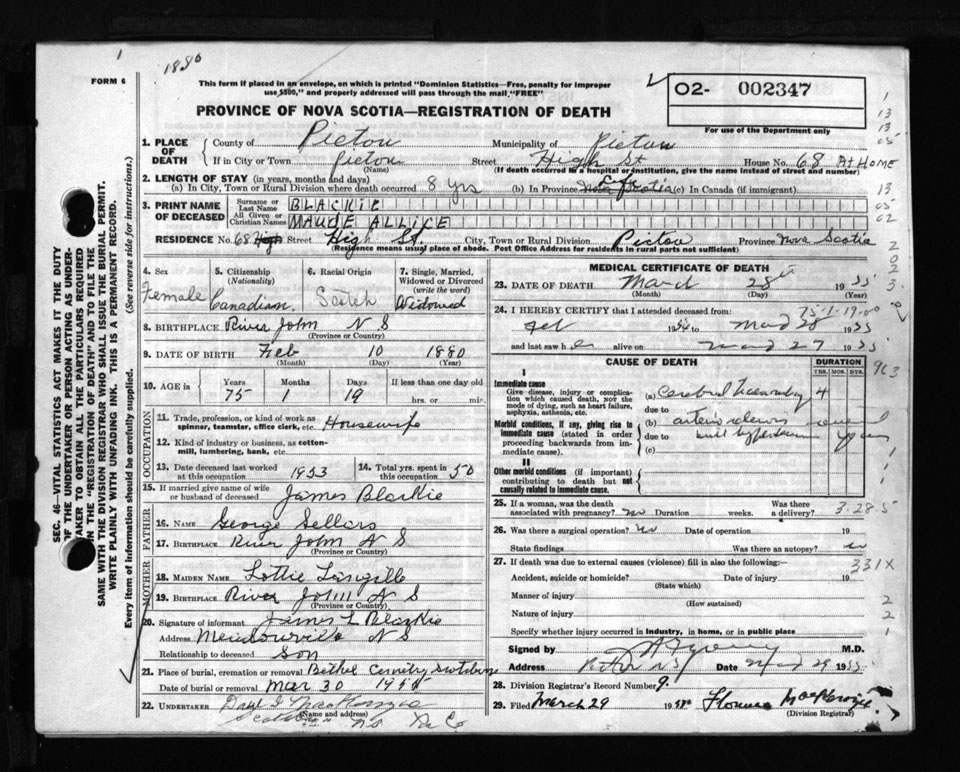 1880
FORM 6
This form if placed in an envelope, on which is printed "Dominion Statistics—Free, penalty for improper
use $300," and properly addressed will pass through the mail "FREE"
O2- 002347
For use of the Department only
PROVINCE OF NOVA SCOTIA—REGISTRATION OF DEATH
1. PLACE OF DEATH
County of Pictou Municipality of Pictou
If in City or Town Pictou Street High St House No. 68 At HOME
(Name) (If death occurred in a hospital or institution, give the name instead of street and number)
2. LENGTH OF STAY (in years, months and days)
(a) In City, Town or Rural Division where death occurred 8 yrs (b) In Province Nova Scotia Life (c) In Canada (if immigrant)
3. PRINT NAME OF DECEASED
Surname or Last Name BLACKIE
All Given or Christian Names MAUDE ALLICE
RESIDENCE No. 68 High Street High St. City, Town or Rural Division Pictou Province Nova Scotia
(Residence means usual place of abode. Post Office Address for residents in rural parts not sufficient)
4. Sex Female
5. Citizenship (Nationality) Canadian
6. Racial Origin Scotch
7. Single, Married, Widowed or Divorced (write the word) Widowed
8. BIRTHPLACE River John N S
(Province or Country)
9. DATE OF BIRTH Feb 10 1880
(Month) (Day) (Year)
10. AGE in Years 75 Months 1 Days 19 If less than one day old
hrs. or min.
OCCUPATION
11. Trade, profession, or kind of work as spinner, teamster, office clerk, etc. Housewife
12. Kind of industry or business, as cotton-mill, lumbering, bank, etc.
13. Date deceased last worked at this occupation 1953 14. Total yrs. spent in this occupation 50
15. If married give name of wife or husband of deceased James Blackie
FATHER
16. NAME George Sellars
17. BIRTHPLACE River John N S
(Province or Country)
MOTHER
18. MAIDEN NAME Lottie
19. BIRTHPLACE River John N S
(Province or Country)
20. Signature of informant James L Blackie
Address Meadowville N S
Relationship to deceased Son
21. Place of burial, cremation or removal Bethel Cemetry Scotsburn
Date of burial or removal Mar 30 1955
22. UNDERTAKER MacKenzie
(Name and address)
Co
MEDICAL CERTIFICATE OF DEATH
23. DATE OF DEATH March 28th 1955
(Month) (Day) (Year)
75-1-19-00
24. I HEREBY CERTIFY that I attended deceased from:
Feb 1954 to Mar 28 1955
and last saw her alive on Mar 27 1955
CAUSE OF DEATH
DURATION
YRS. MOS. DYS.
I
Immediate cause
Give disease, injury or complication which caused death, not the mode of dying, such as heart failure, asphyxia, asthenia, etc.
(a) Cerebral 4
due to
Morbid conditions, if any, giving rise to immediate cause (stated in order proceeding backwards from immediate cause).
(b) arteriosclerosis several
due to with hypertension years
(c)
II
Other morbid conditions (if important) contributing to death but not causally related to immediate cause.
25. If a woman, was the death associated with pregnancy? no Duration weeks. Was there a delivery?
3-28-5
26. Was there a surgical operation? no Date of operation 19
State findings Was there an autopsy? no
27. If death was due to external causes (violence) fill in also the following:—
331X
Accident, suicide or homicide? Date of injury 19
(State which)
Manner of injury
(How sustained)
Nature of injury
Specify whether injury occurred in industry, in home, or in public place
Signed by M.D.
Address Pictou NS Date Mar 29 1955
28. Division Registrar's Record Number 9.
29. Filed March 29 1955 Florence
(Division Registrar)
SEC. 46—VITAL STATISTICS ACT MAKES IT THE DUTY
OF THE UNDERTAKER OR PERSON ACTING AS UNDERTAKER TO OBTAIN ALL THE PARTICULARS REQUIRED
IN THE "REGISTRATION OF DEATH" AND TO FILE THE
SAME WITH THE DIVISION REGISTRAR WHO SHALL ISSUE THE BURIAL PERMIT.
WRITE PLAINLY WITH UNFADING INK. THIS IS A PERMANENT RECORD.
Every item of information should be carefully supplied. (See reverse side for instructions.)
1
13
13
05
13
05
02
2
0
2
3
963
2
2
1